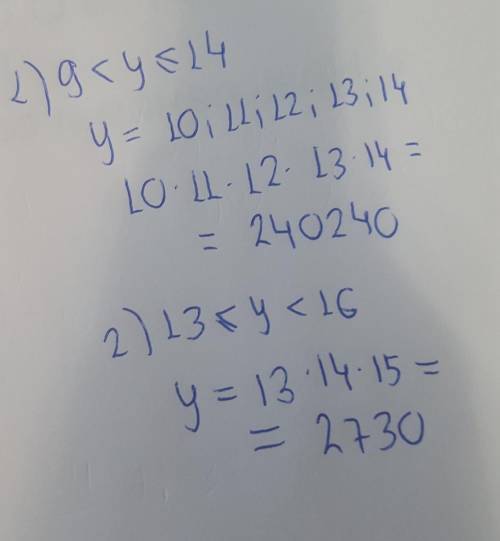 1) 9 < y ≤ 14
y = 10; 11; 12; 13; 14
10 · 11 · 12 · 13 · 14 =
= 240240
2) 13 ≤ y < 16
y = 13 · 14 · 15 =
= 2730